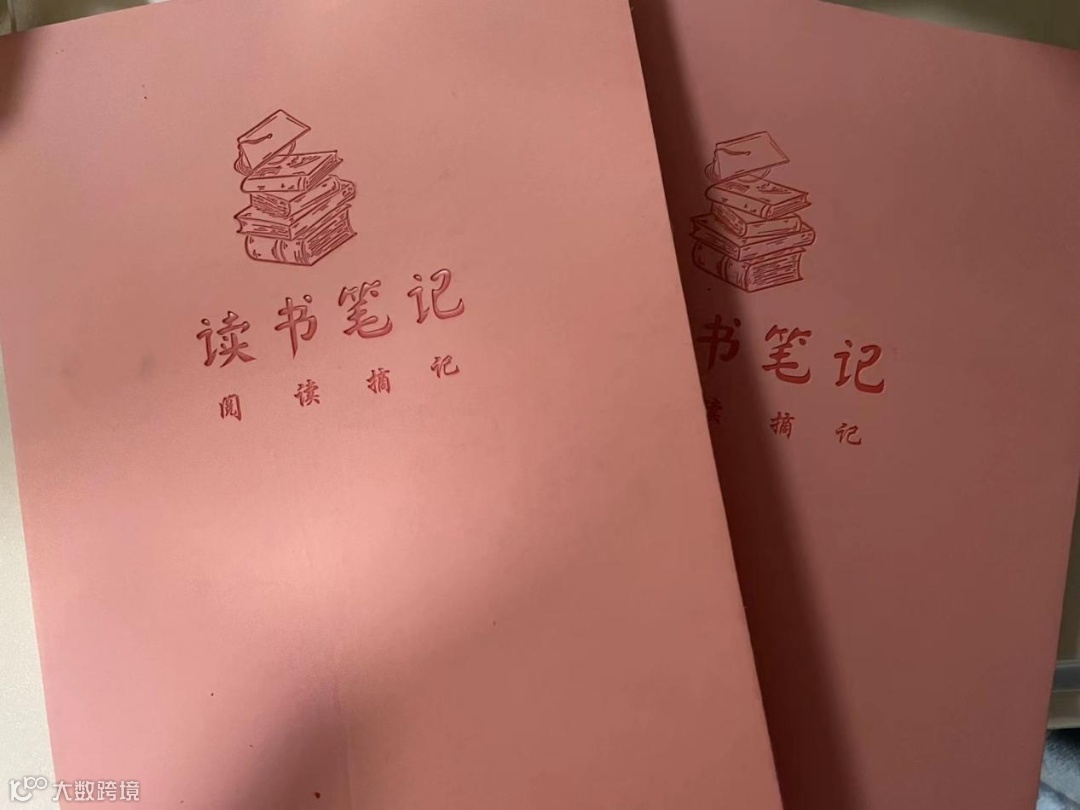 读书笔记
阅读摘记
书笔记
读摘记
大数跨境